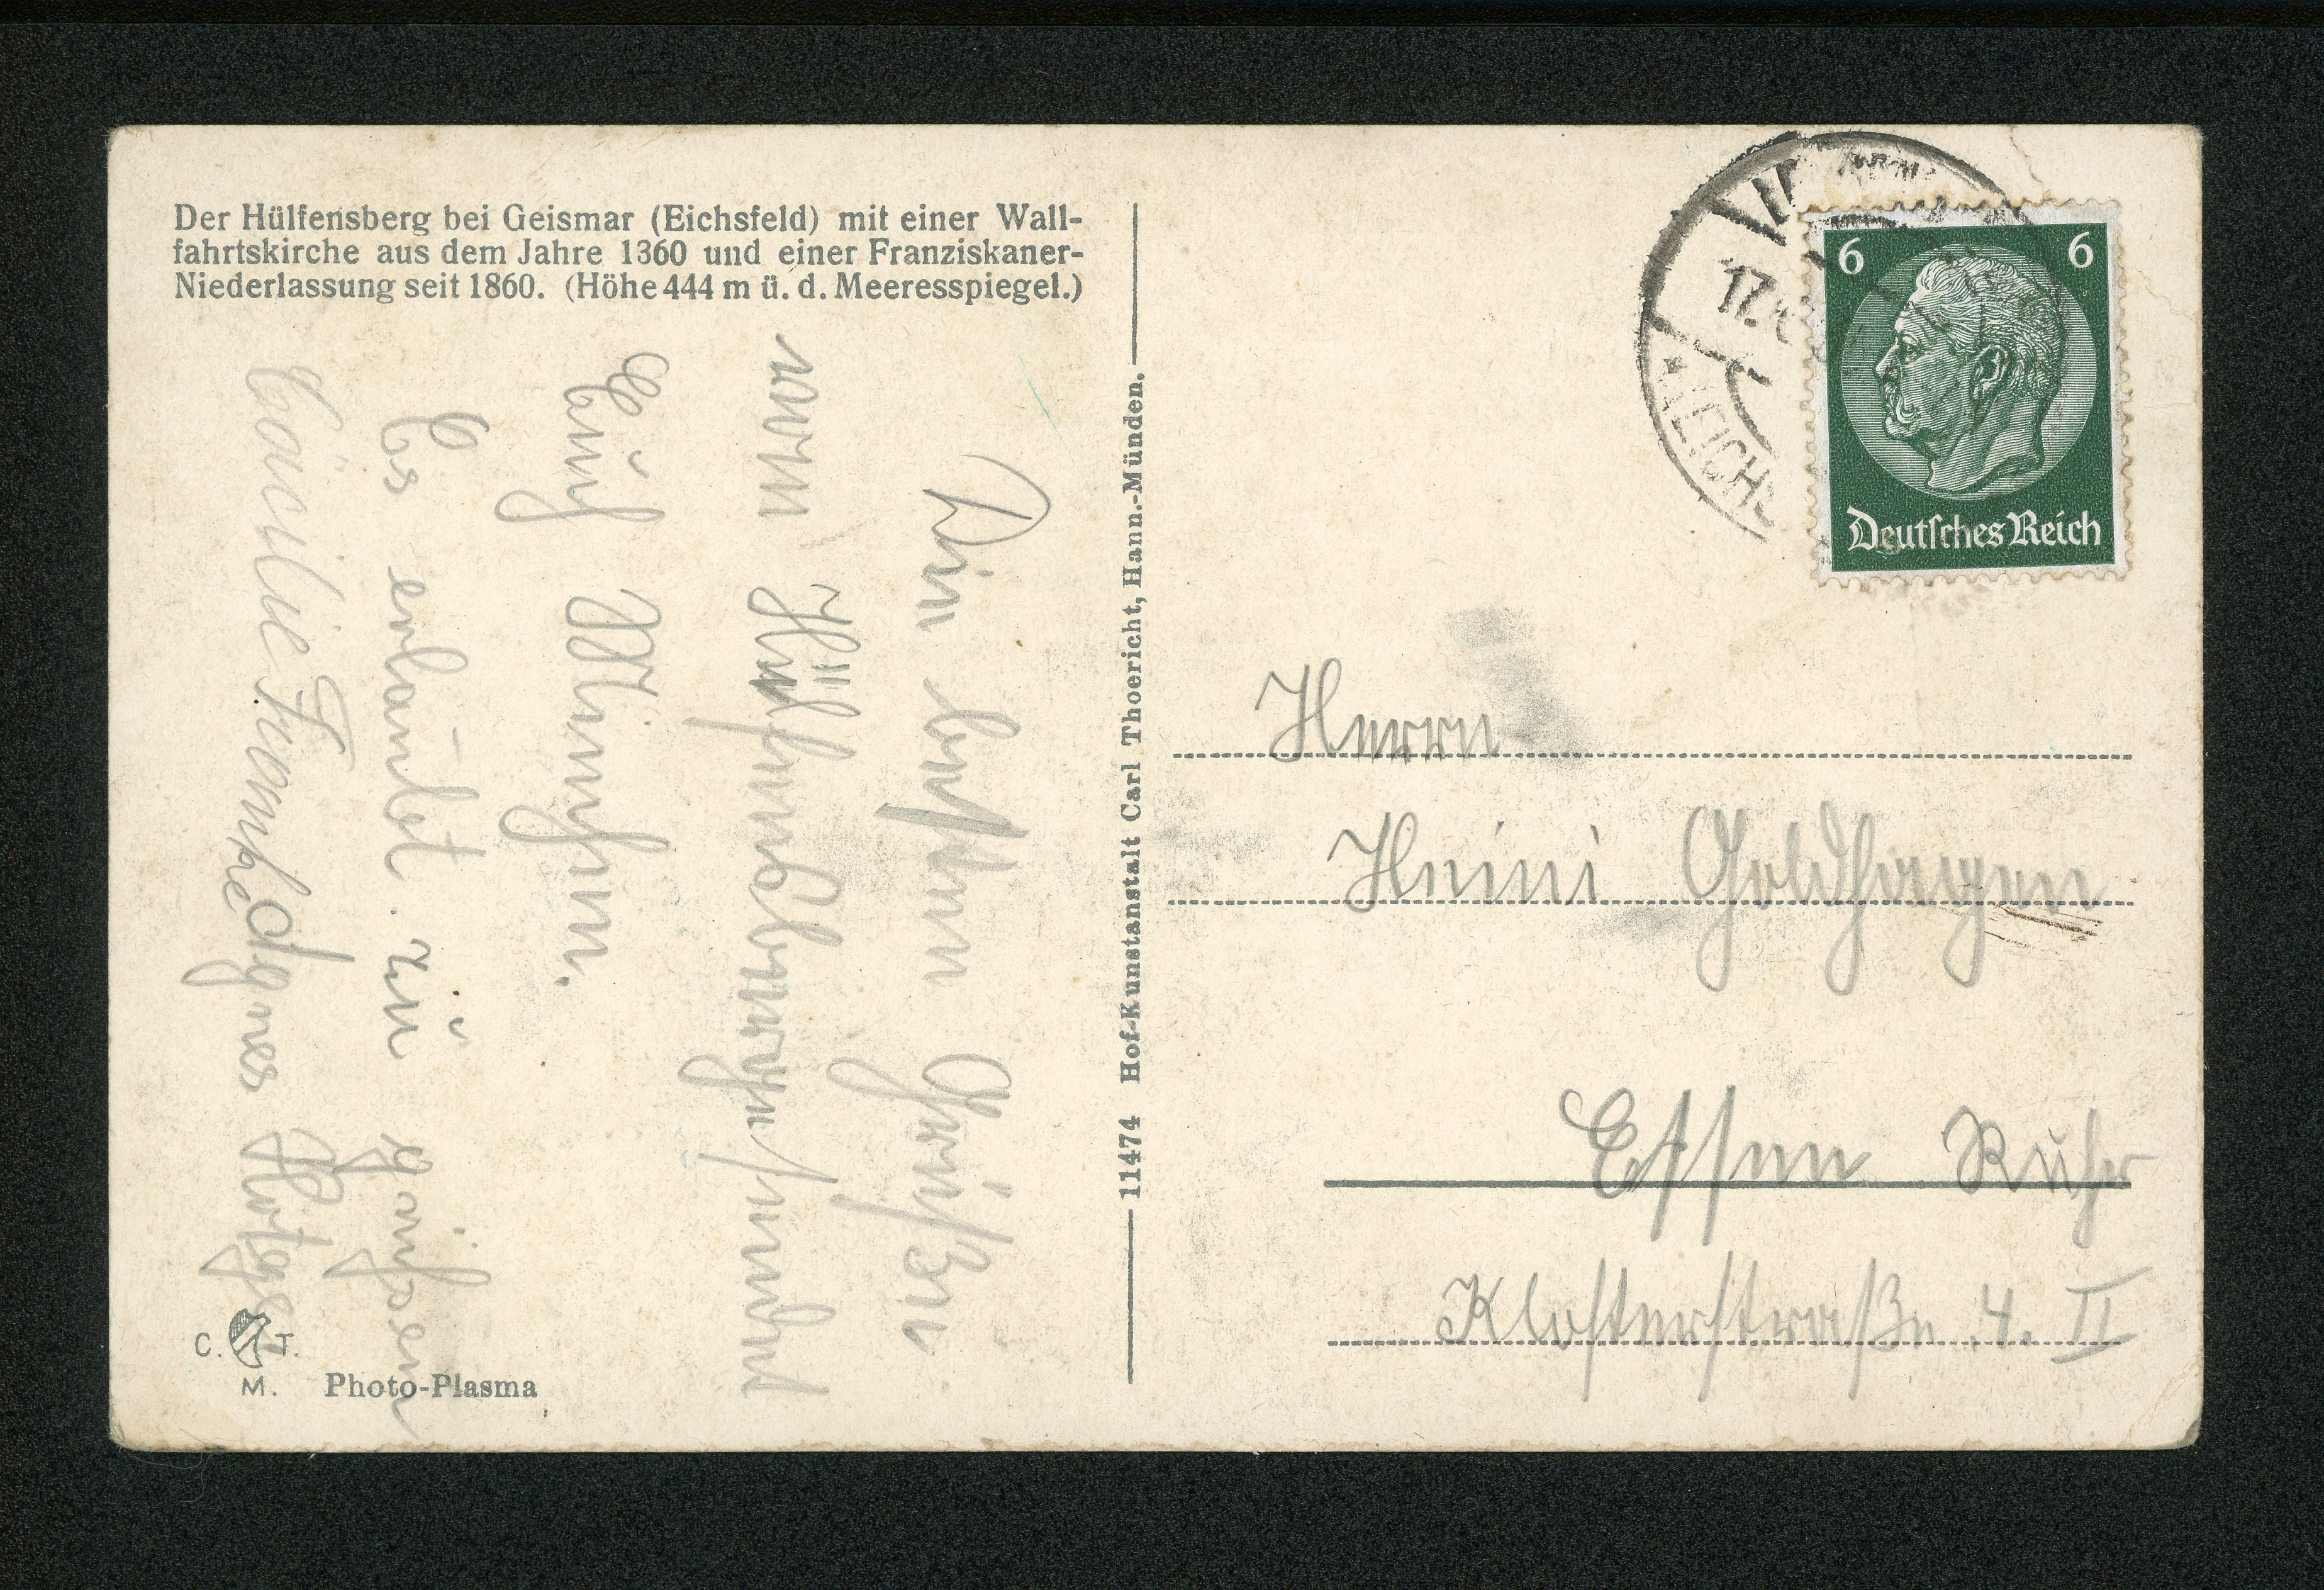 Der Hülfensberg bei Geismar (Eichsfeld) mit einer Wall-
fahrtskirche aus dem Jahre 1360 und einer Franziskaner-
Niederlassung seit 1860. (Höhe 444 m ü. d. Meeresspiegel.)
Die besten Grüßen
vom Hülfensberge sendet
Euch Minchen.
Es erlaubt zu grüßen
Cäcilie Franke Agnes
C. T.
M. Photo-Plasma
11474 Hof-Kunstanstalt Carl Thoericht, Hann.-Münden.
17.
6 6
Deutsches Reich
Herrn
Heini Goldhagen
Essen Ruhr
Klosterstraße 4. II